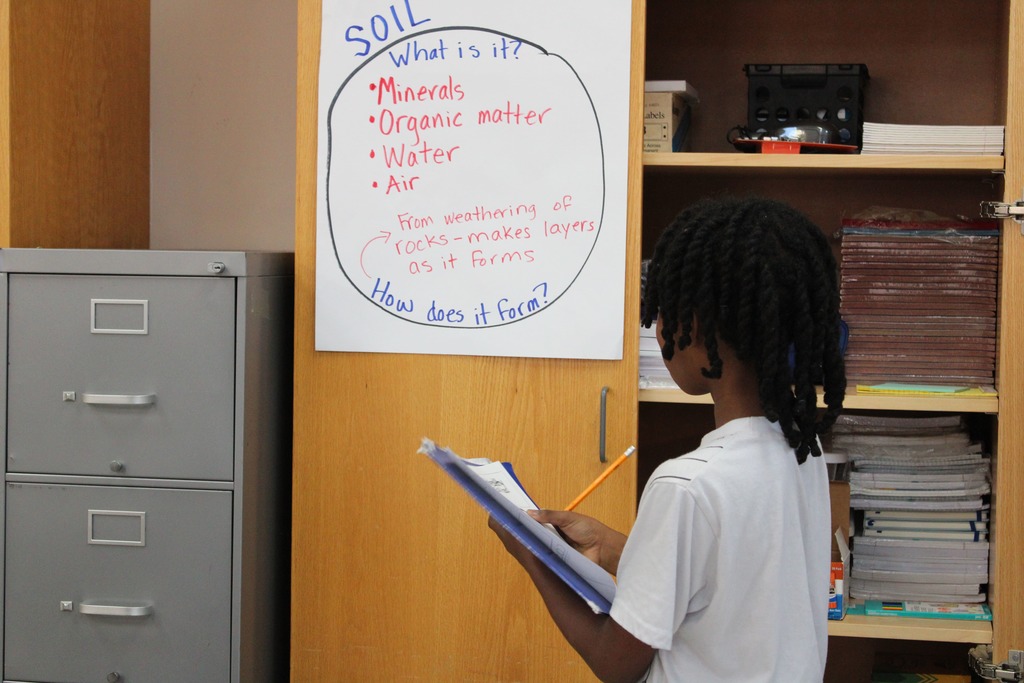 SOIL
What is it?
• Minerals
• Organic matter
• Water
• Air
From weathering of
rocks - makes layers
as it forms
How does it form?
Labels